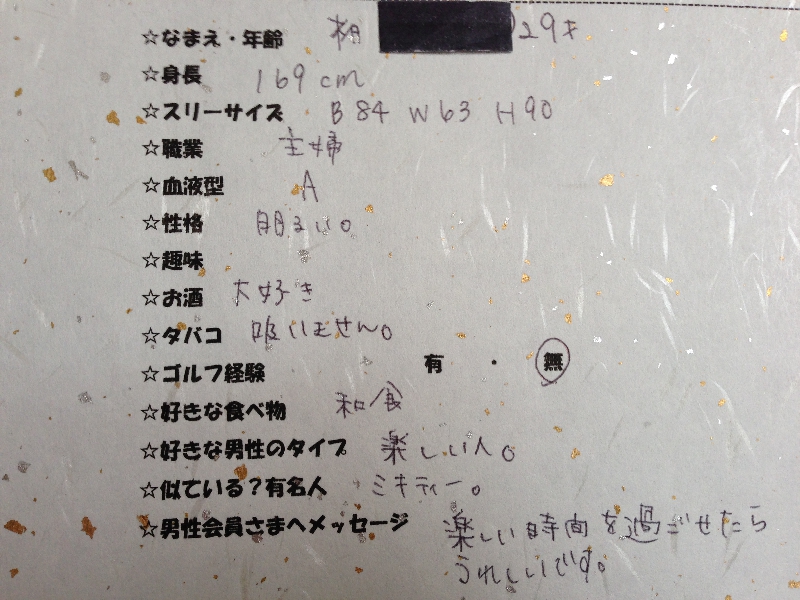 ☆なまえ・年齢 29才
☆身長 169cm
☆スリーサイズ B84 W63 H90
☆職業 主婦
☆血液型 A
☆性格 明るい。
☆趣味
☆お酒 大好き
☆タバコ 吸いません。
☆ゴルフ経験 有・無
☆好きな食べ物 和食
☆好きな男性のタイプ 楽しい人。
☆似ている?有名人 ミキティー。
☆男性会員さまへメッセージ 楽しい時間を過ごせたら
うれしいです。